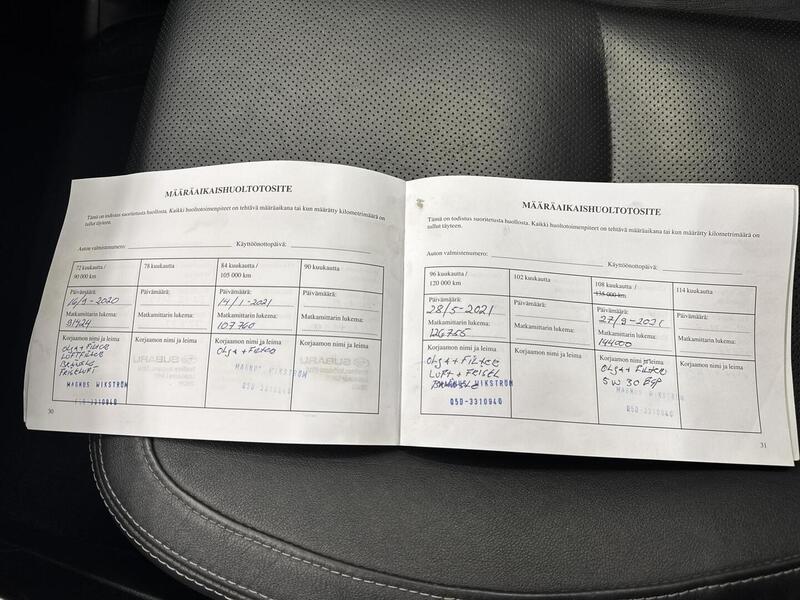 MÄÄRÄAIKAISHUOLTOTOSITE
Tämä on todistus suoritetusta huollosta. Kaikki huoltotoimenpiteet on tehtävä määräaikana tai kun määrätty kilometrimäärä on
tullut täyteen.
Auton valmistenumero: Käyttöönottopäivä:
72 kuukautta /
90 000 km
78 kuukautta
84 kuukautta /
105 000 km
90 kuukautta
Päivämäärä:
16/9-2020
Päivämäärä:
Päivämäärä:
14/1-2021
Päivämäärä:
Matkamittarin lukema:
91424
Matkamittarin lukema:
Matkamittarin lukema:
107760
Matkamittarin lukema:
Korjaamon nimi ja leima
Olja + Filter
LUFTFILTER
MAGNUS WIKSTRÖM
050-3310940
Korjaamon nimi ja leima
SUBARU
Korjaamon nimi ja leima
Olja +
MAGNUS WIKSTRÖM
050-3310940
Korjaamon nimi ja leima
SUBARU
30
MÄÄRÄAIKAISHUOLTOTOSITE
Tämä on todistus suoritetusta huollosta. Kaikki huoltotoimenpiteet on tehtävä määräaikana tai kun määrätty kilometrimäärä on
tullut täyteen.
Auton valmistenumero: Käyttöönottopäivä:
96 kuukautta /
120 000 km
102 kuukautta
108 kuukautta /
135 000 km
114 kuukautta
Päivämäärä:
28/5-2021
Päivämäärä:
Päivämäärä:
27/9-2021
Päivämäärä:
Matkamittarin lukema:
126755
Matkamittarin lukema:
Matkamittarin lukema:
144400
Matkamittarin lukema:
Korjaamon nimi ja leima
Olja + Filter
LUFT +
MAGNUS WIKSTRÖM
050-3310940
Korjaamon nimi ja leima
Korjaamon nimi ja leima
Olja + Filter
5W30
MAGNUS WIKSTRÖM
050-3310940
Korjaamon nimi ja leima
31